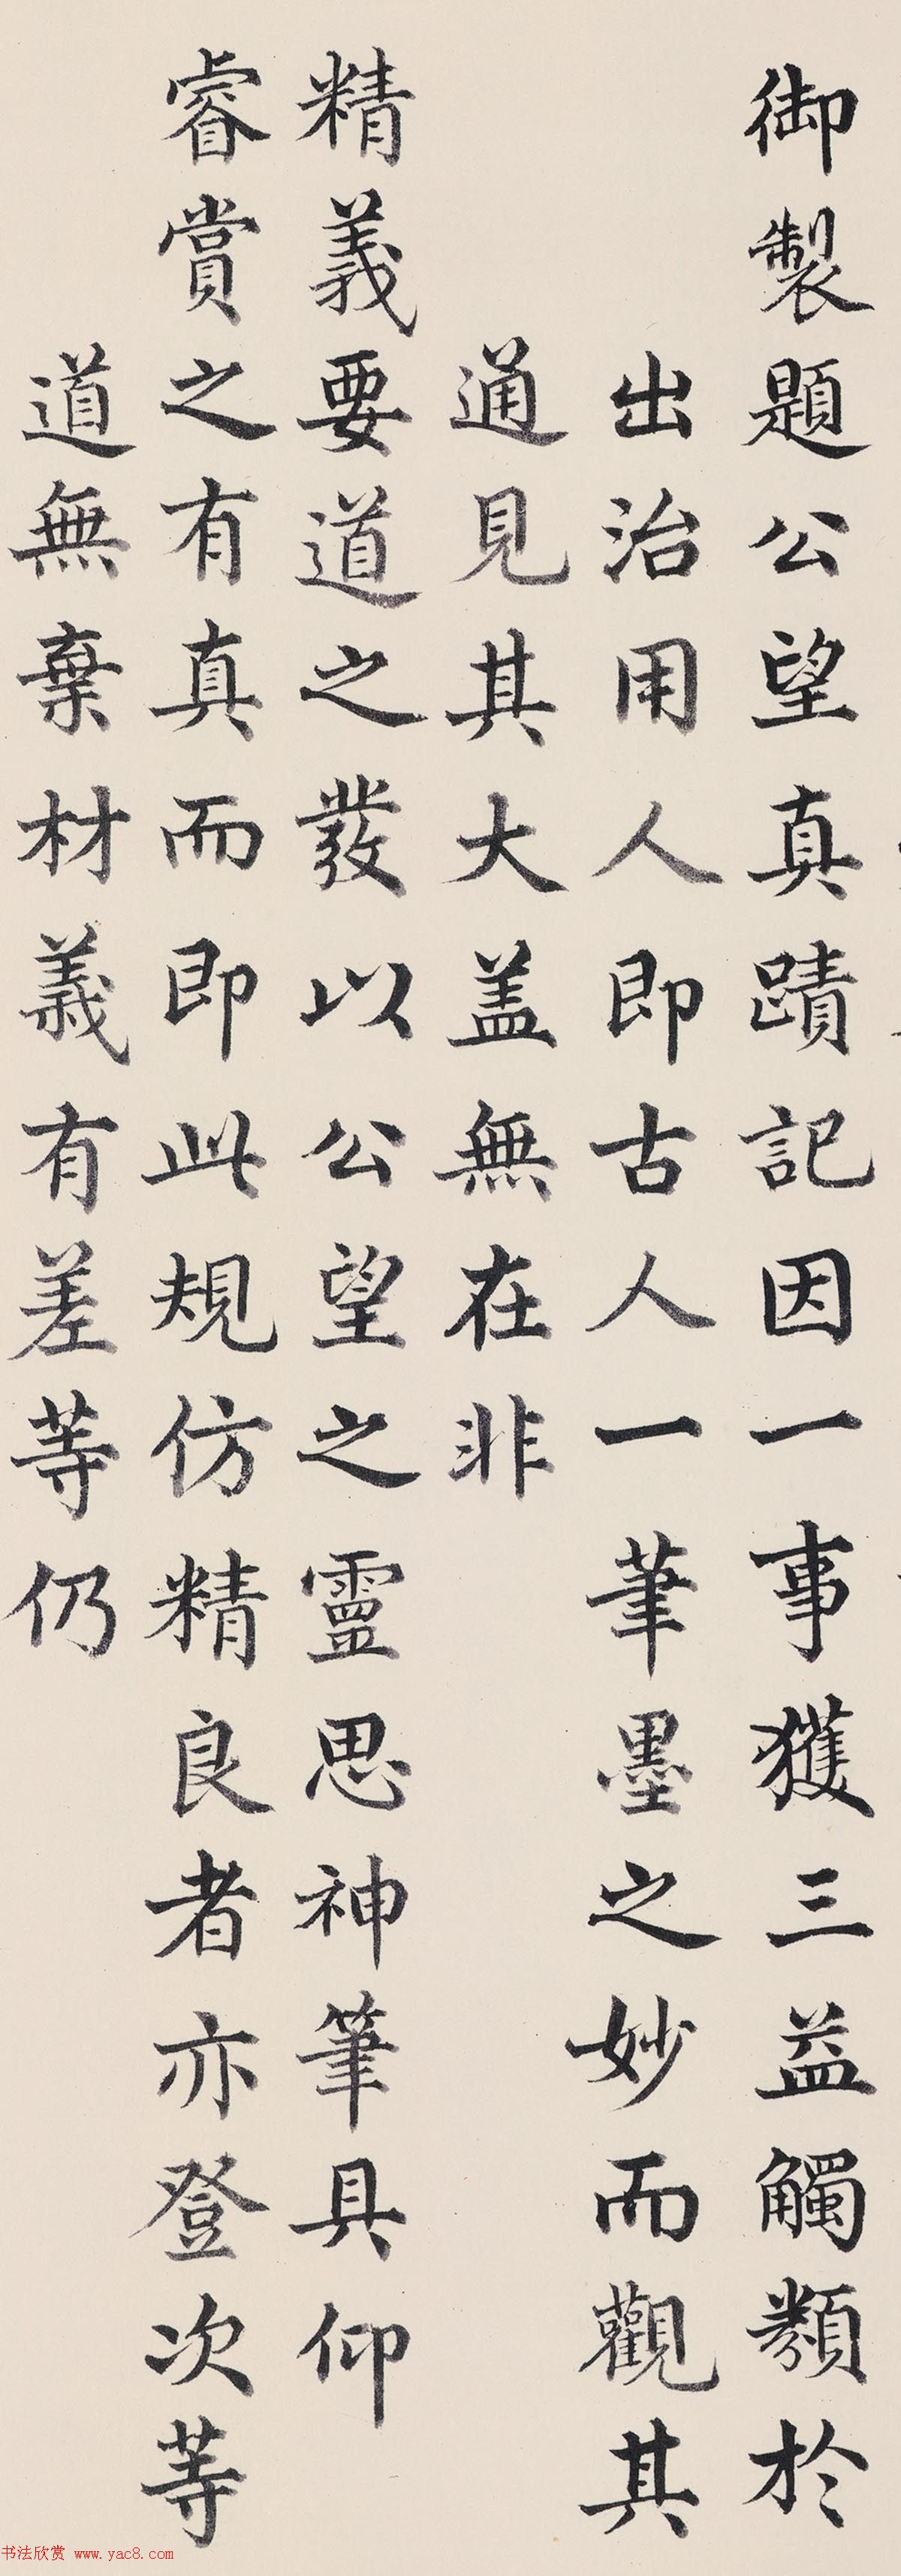 御製題公望真蹟記因一事獲三益觸類於
出治用人即古人一筆墨之妙而觀其
通見其大盖無在非
精義要道之發以公望之靈思神筆具仰
睿賞之有真而即此規仿精良者亦登次等
道無棄材義有差等仍
书法欣赏 www.yac8.com